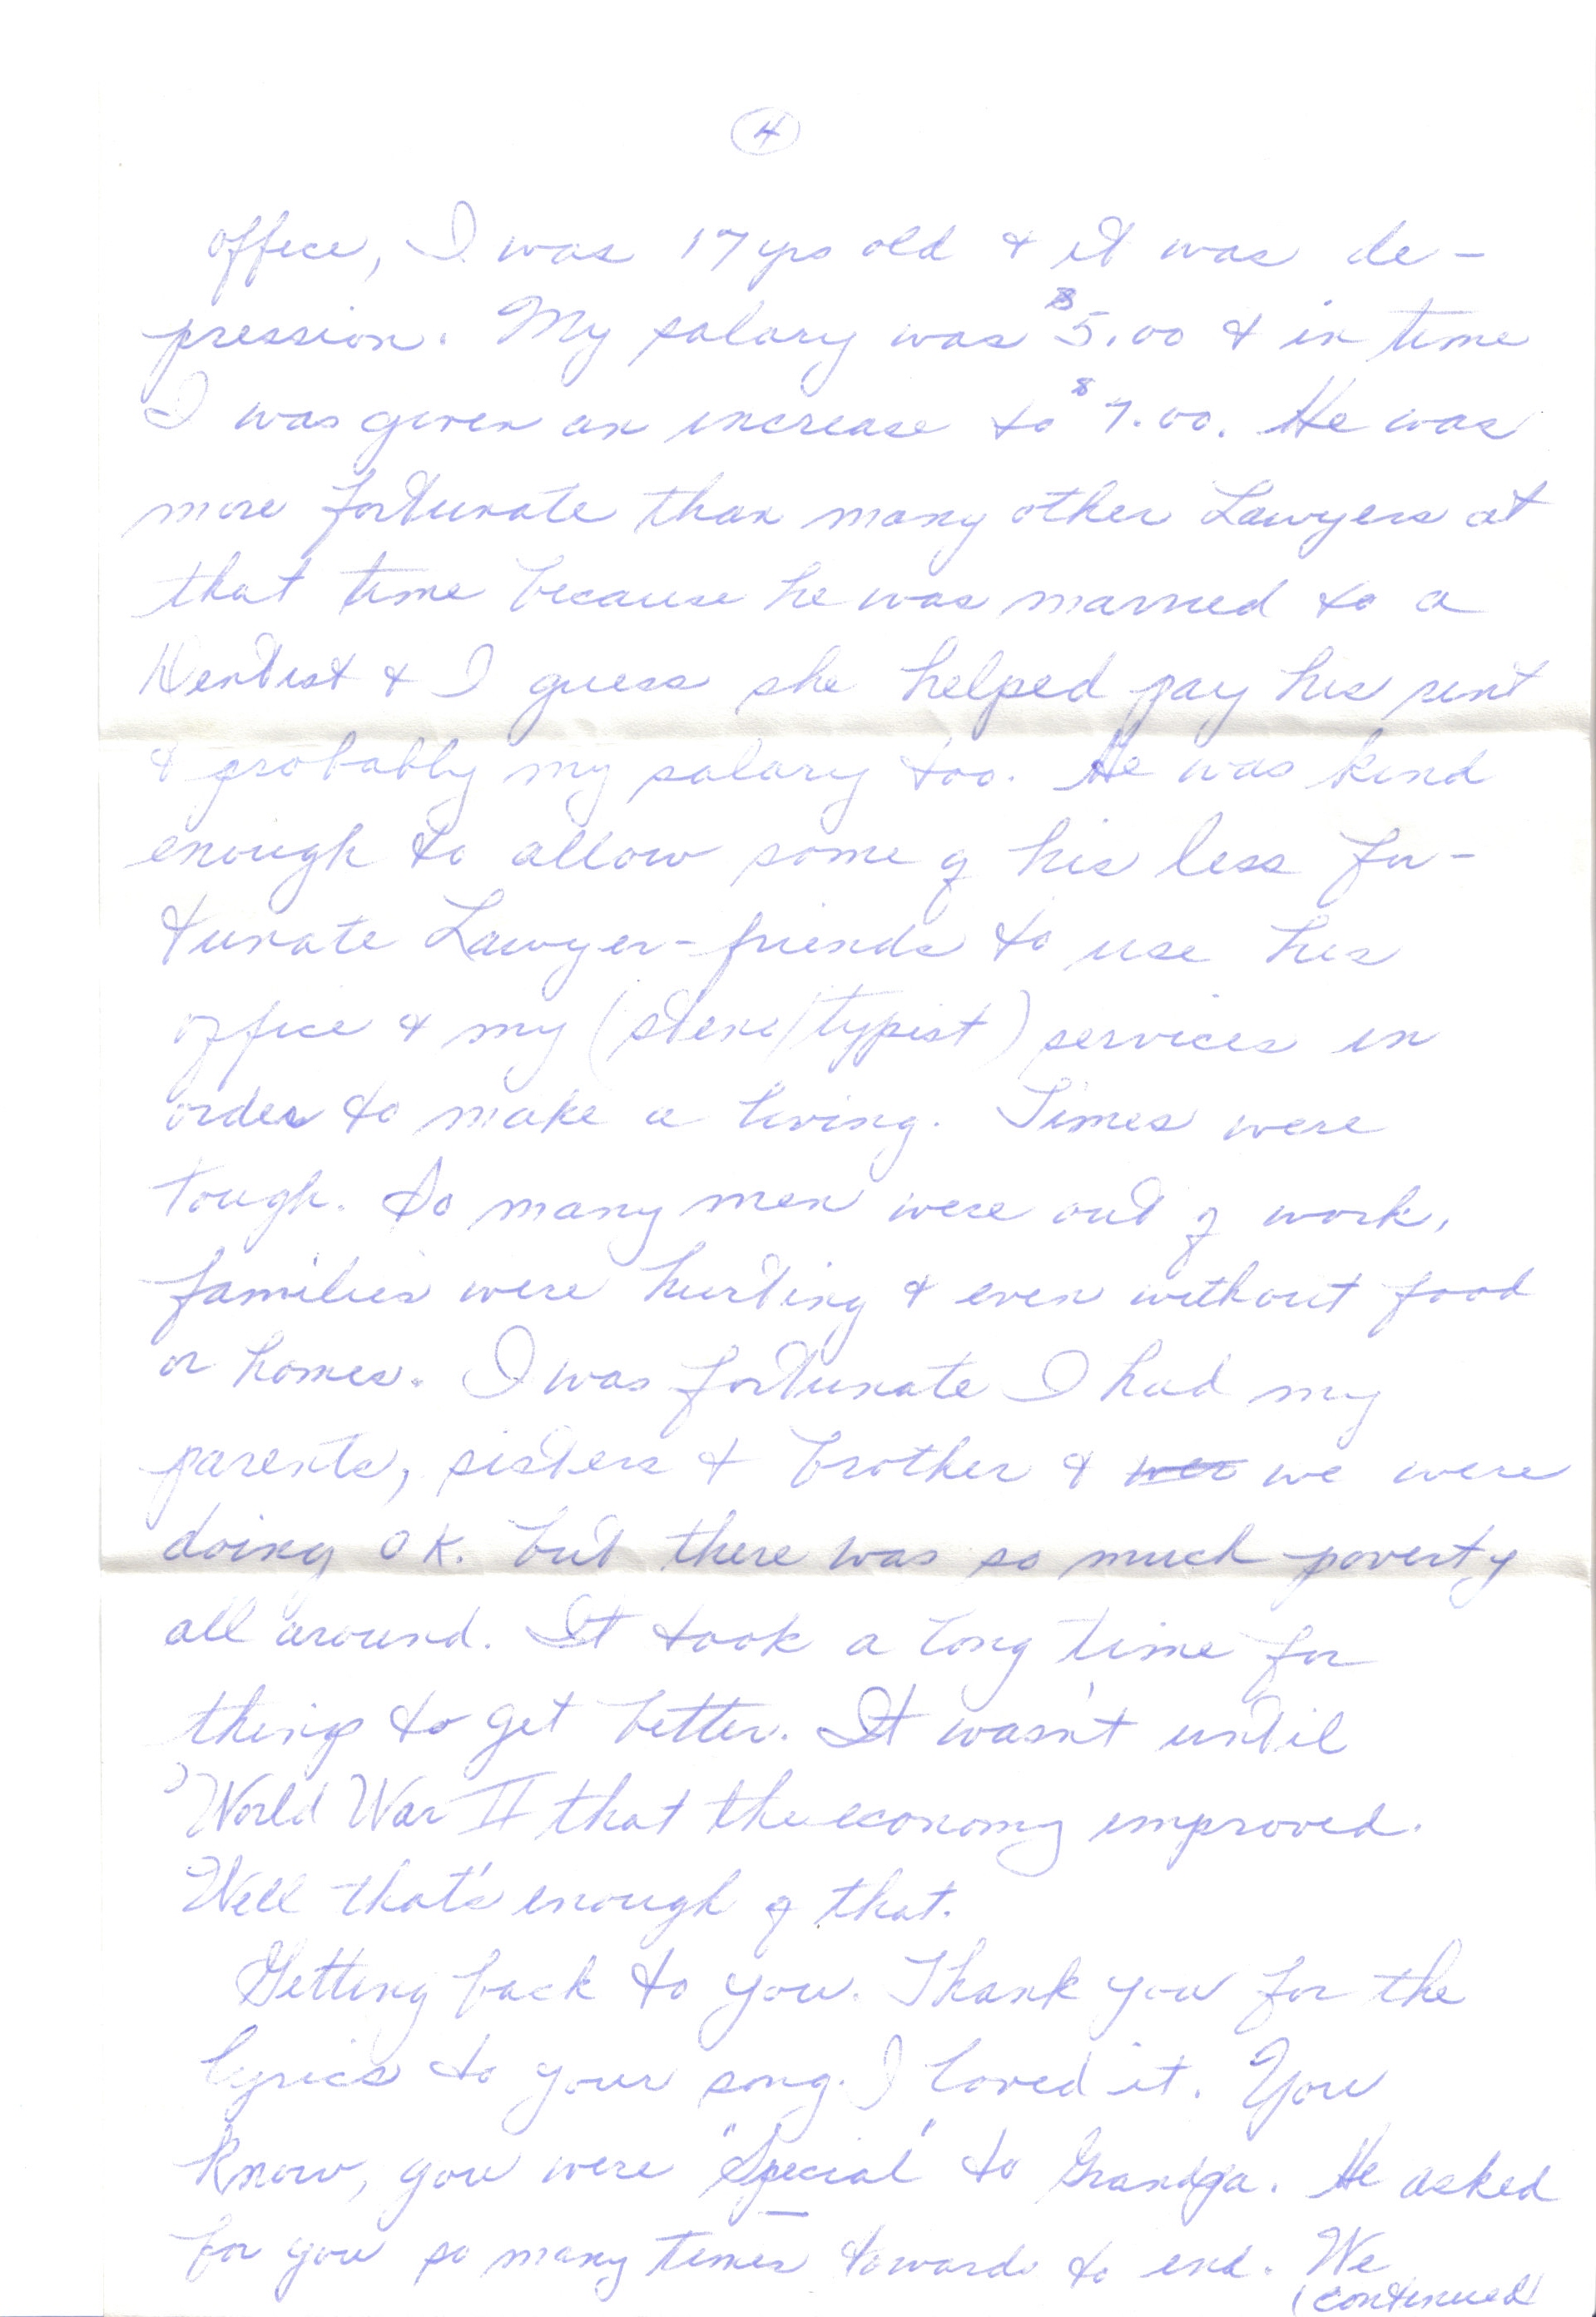 4
office, I was 17 yrs old & it was de-
pression. My salary was $5.00 & in time
I was given an increase to $7.00. He was
more fortunate than many other Lawyers at
that time because he was married to a
Dentist & I guess she helped pay his rent
& probably my salary too. He was kind
enough to allow some of his less for-
tunate Lawyer-friends to use his
office & my (steno/typist) services in
order to make a living. Times were
tough. So many men were out of work,
families were hurting & even without food
or homes. I was fortunate I had my
parents, sisters & brother & wer we were
doing OK. but there was so much poverty
all around. It took a long time for
things to get better. It wasn't until
World War II that the economy improved.
Well that's enough of that.
Getting back to you. Thank you for the
lyrics to your song. I loved it. You
know, you were "Special" to Grandpa. He asked
for you so many times towards to end. We
(continued)